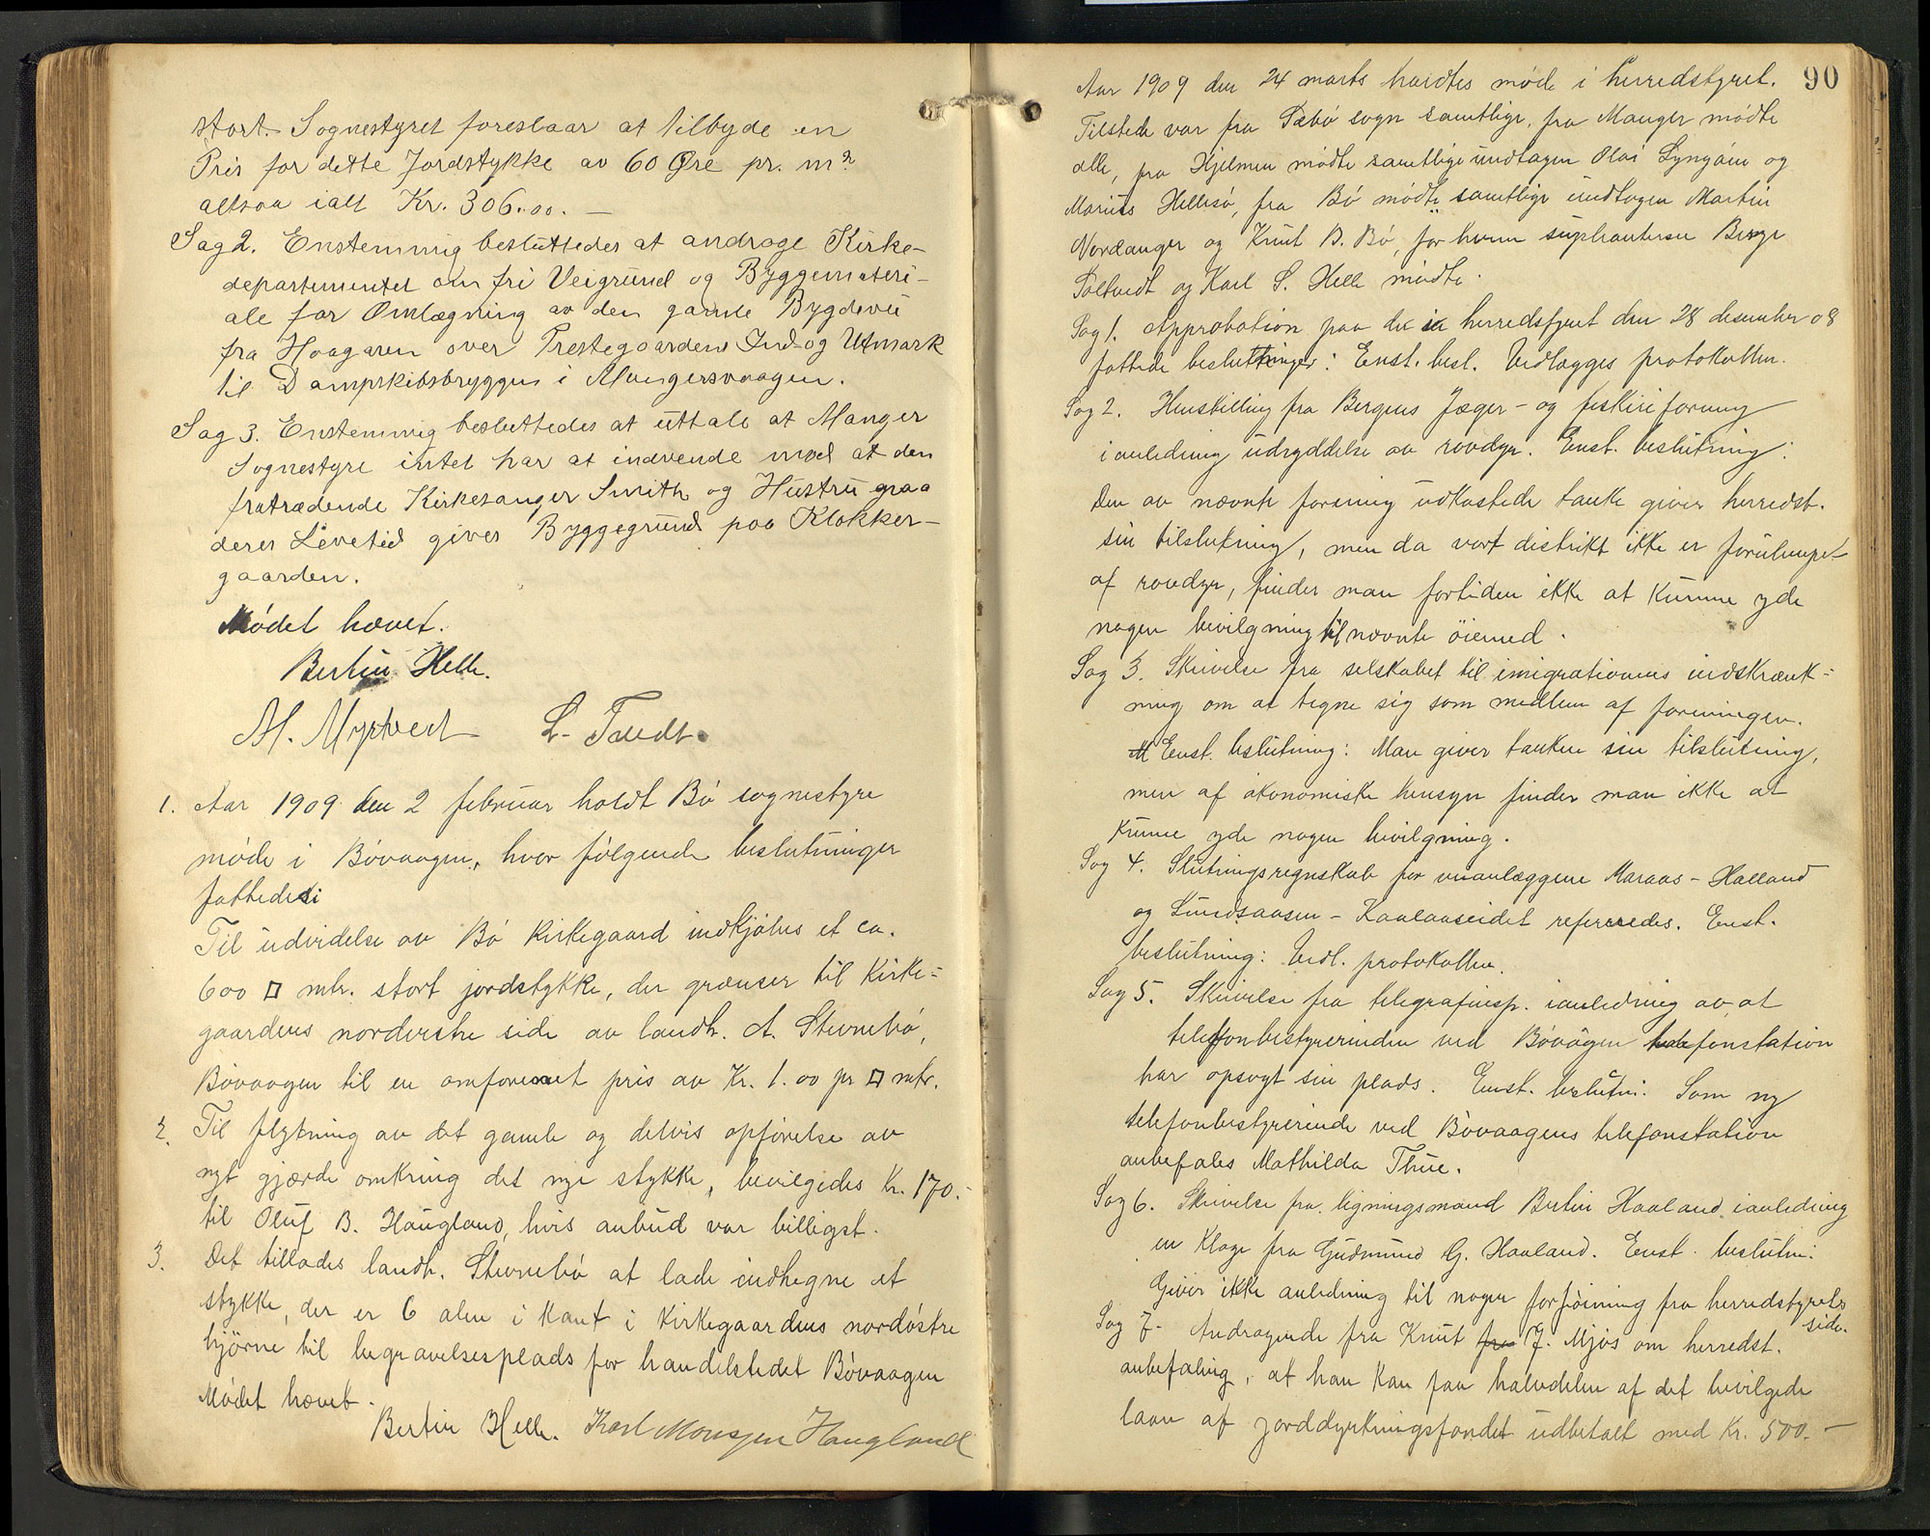 stort. Sognestyret foreslaar at tilbyde en
Pris for dette Jordstykke av 60 Øre pr. m²
altsaa ialt Kr. 306.00. —
Sag 2. Enstemmig besluttedes at androge Kirke-
departementet om fri Veigrund og Byggemateri-
ale for Omlægning av den gamle Bygdevei
fra Haagaren over Prestegaardens Ind- og Utmark
til Dampskibsbryggen i Mangersvaagen.
Sag 3. Enstemmig besluttedes at uttale at Manger
Sognestyre intet har at indvende mod at den
fratrædende Kirkesanger Smith og Hustru paa
deres Levetid gives Byggegrund paa Klokker-
gaarden.
Mødet hævet.
Bertin Helle.
M. Myrtvedt L. Tvedt.
1. Aar 1909 den 2 februar holdt Bø sognestyre
møde i Bøvaagen, hvor følgende beslutninger
fattedes:
Til udvidelse av Bø Kirkegaard indkjøbes et ca.
600 □ mtr. stort jordstykke, der grænser til Kirke-
gaardens norderstre side av landh. A. Stevnebø,
Bøvaagen til en omforenet pris av Kr. 1.00 pr □ mtr.
2. Til flytning av det gamle og delvis opførelse av
nyt gjærde omkring det nye stykke, bevilgedes Kr. 170.-
til Oluf B. Haugland, hvis anbud var billigst.
3. Det tillades landh. Stevnebø at lade indhegne et
stykke, der er 6 alen i kant i Kirkegaardens nordøstre
hjørne til begravelsesplads for handelstedet Bøvaagen
Mødet hævet.
Bertin Helle. Karl Monsen Haugland
90
Aar 1909 den 24 marts holdtes møde i herredstyret.
Tilstede var fra Sæbø sogn samtlige, fra Manger mødte
alle, fra Hjelmen mødte samtlige undtagen Olai Lyngøen og
Marius Hellesø, fra Bø mødte samtlige undtagen Martin
Nordanger og Knut B. Bø, for hvem suplianterne Berge
Toltvedt og Karl S. Helle mødte.
Sag 1. Approbation paa de i herredstyret den 28 desember 08
fattede beslutninger: Enst. besl. Vedlægges protokollen.
Sag 2. Henstilling fra Bergens Jæger- og fiskeriforening
i anledning udryddelse av rovdyr. Enst. beslutning:
Den av nævnte forening udkastede tanke giver herredst.
sin tilslutning, men da vort distrikt ikke er forulempet
af rovdyr, finder man fortiden ikke at kunne yde
nogen bevilgning til nævnte øiemed.
Sag 3. Skrivelse fra selskabet til imigrationens indskrænk-
ning om at tegne sig som medlem af foreningen.
Enst. beslutning: Man giver tanken sin tilslutning,
men af økonomiske hensyn finder man ikke at
kunne yde nogen bevilgning.
Sag 4. Slutningsregnskab for veianlæggene Maraas - Halland
og Lundsaasen - Kaalaaseidet refereredes. Enst.
beslutning: Vedl. protokollen.
Sag 5. Skrivelse fra telegrafinsp. i anledning av, at
telefonbestyrerinden ved Bøvågen telefonstation
har opsagt sin plads. Enst. beslutn: Som ny
telefonbestyrerinde ved Bøvaagens telefonstation
anbefales Mathilda Thue.
Sag 6. Skrivelse fra ligningsmand Bertin Haaland i anledning
en klage fra Gudmund G. Haaland. Enst. beslutn:
Giver ikke anledning til nogen forføining fra herredstyrets
side.
Sag 7. Andragende fra Knut fra J. Mjøs om herredst.
anbefaling, at han kan faa halvdelen af det bevilgede
laan af jorddyrkningsfondet udbetalt med Kr. 500.—